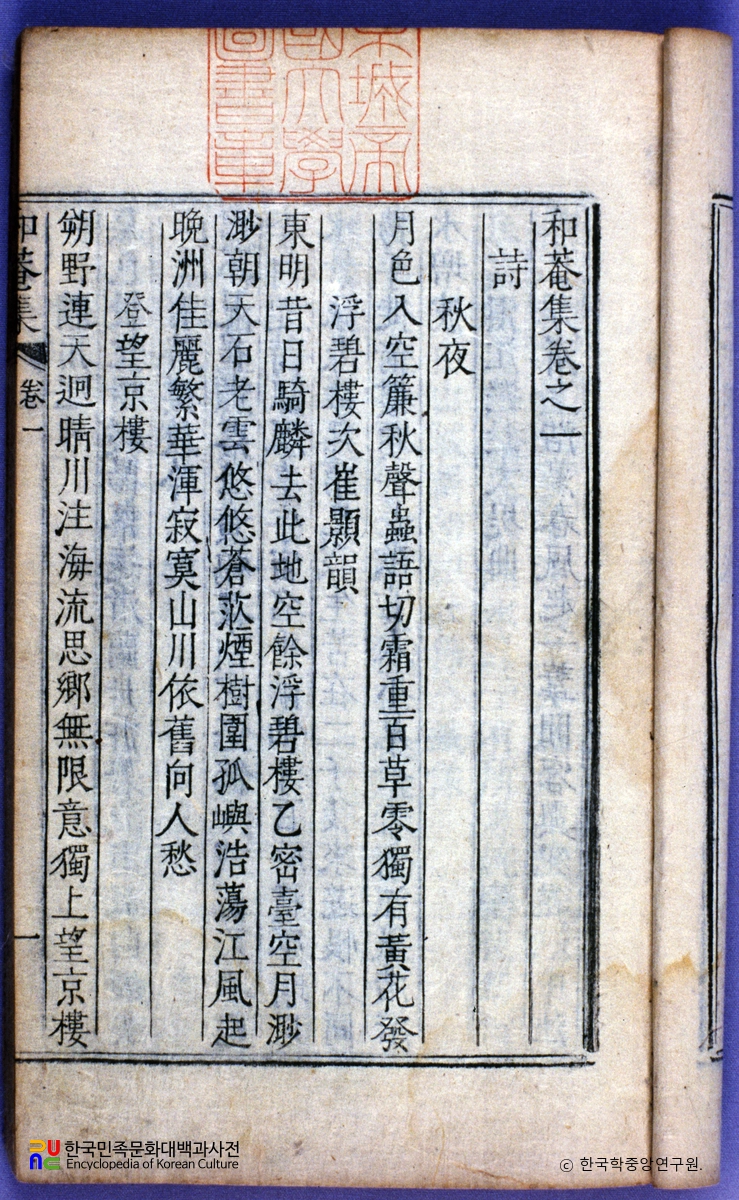 京城帝
國大學
圖書章
和菴集卷之一
詩
秋夜
月色入空簾秋聲蟲語切霜重百草零獨有黃花發
浮碧樓次崔顥韻
東明昔日騎麟去此地空餘浮碧樓乙密臺空月渺
渺朝天石老雲悠悠蒼茫煙樹圍孤嶼浩蕩江風起
晩洲佳麗繁華渾寂寞山川依舊向人愁
登望京樓
朔野連天逈晴川注海流思鄉無限意獨上望京樓
和菴集 卷一 一
한국민족문화대백과사전
Encyclopedia of Korean Culture
© 한국학중앙연구원.